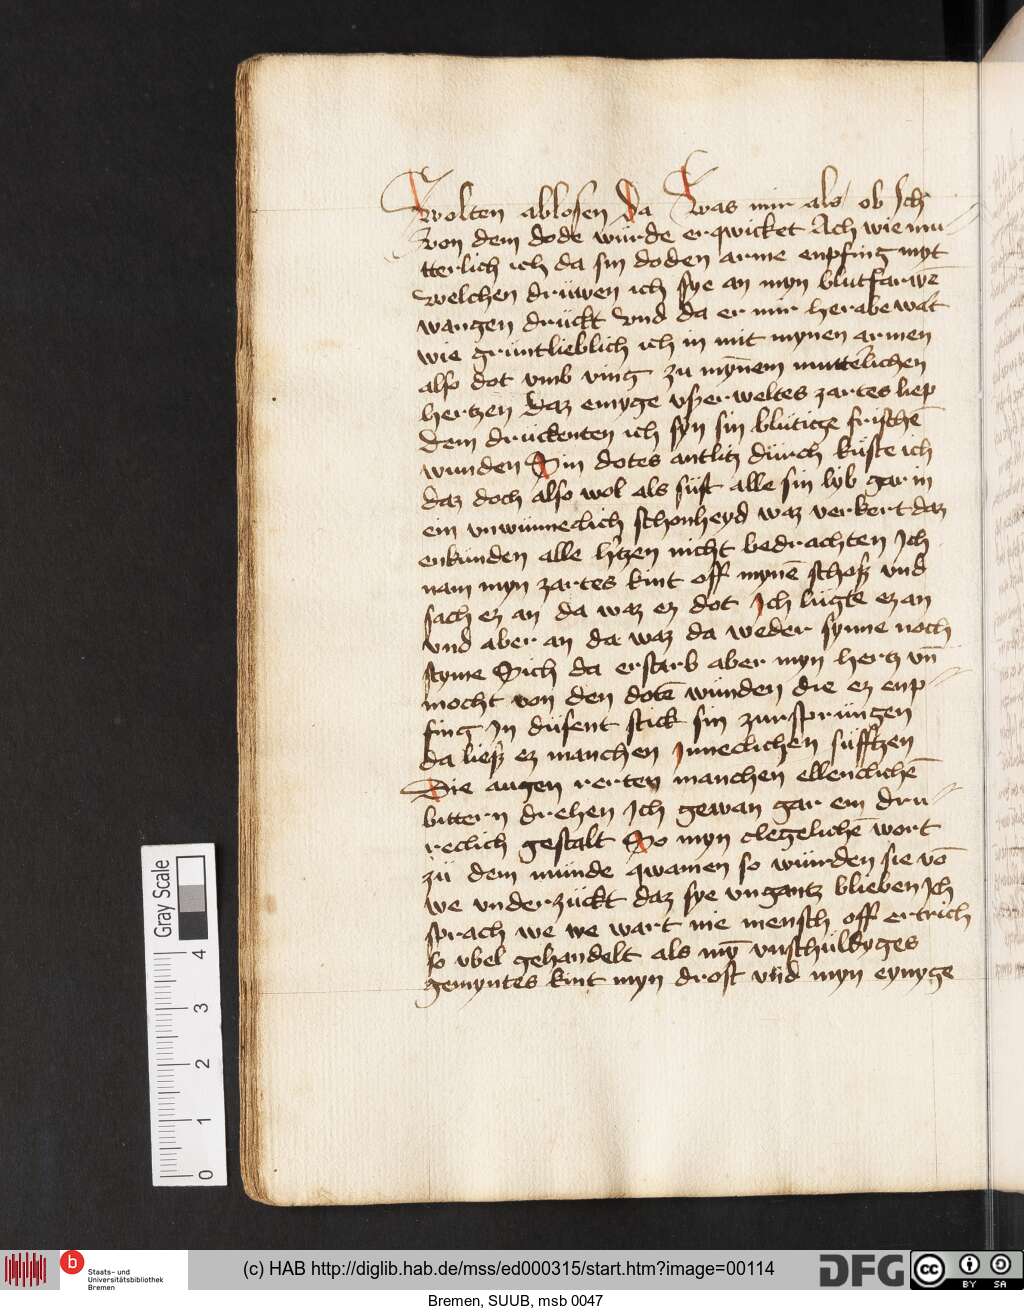 wolten ablosen Da was mir als ob Jch
von dem dode würde erqwicket Ach wie mu-
tterlich ich da sin doden arme enpfing myt
welchen drüwen ich sye an myn blutfarwē
wangen drückt vnd da er mir herabe wart
wie grüntlieblich ich in mit mynen armen
also dot vmb ving zu mynem mutterlichen
hertzen Daz emyge vßerweltes zartes liep
dem drückenten ich syn sin blütige frischē
wunden Sin dotes antlitz dürch küste ich
daz doch also wol als süst alle sin lyb gar in
ein vnwünneclich schonheyd waz verkert daz
enkünden alle htzen nicht bedrachten Jch
nam myn zartes kint off mynē schoß vnd
sach ez an da waz ez dot Jch lügte ez an
vnd aber an da waz da weder synne noch
styme Sich da erstarb aber myn hertz vn̄
mocht von den dotē wünden die ez enp-
fing Jn düsent stick sin zursprüngen
da ließ ez manchen Jnneclichen süfftzen
Die augen rerten manchen ellenclichē
bittern drehen Jch gewan gar ein dru-
reclich gestalt So myn clegelichē wort
zü dem münde qwamen so würden sie vō
we vnderzückt daz sye vngantz blieben Jch
sprach we we wart nie mensch off ertrich
so vbel gehandelt als my̅ vnschüldyges
gemyntes kint myn drost vnd myn eynyge
Gray Scale
4
3
2
1
0
b
Staats- und
Universitätsbibliothek
Bremen
(c) HAB http://diglib.hab.de/mss/ed000315/start.htm?image=00114
DFG
cc
BY SA
Bremen, SUUB, msb 0047